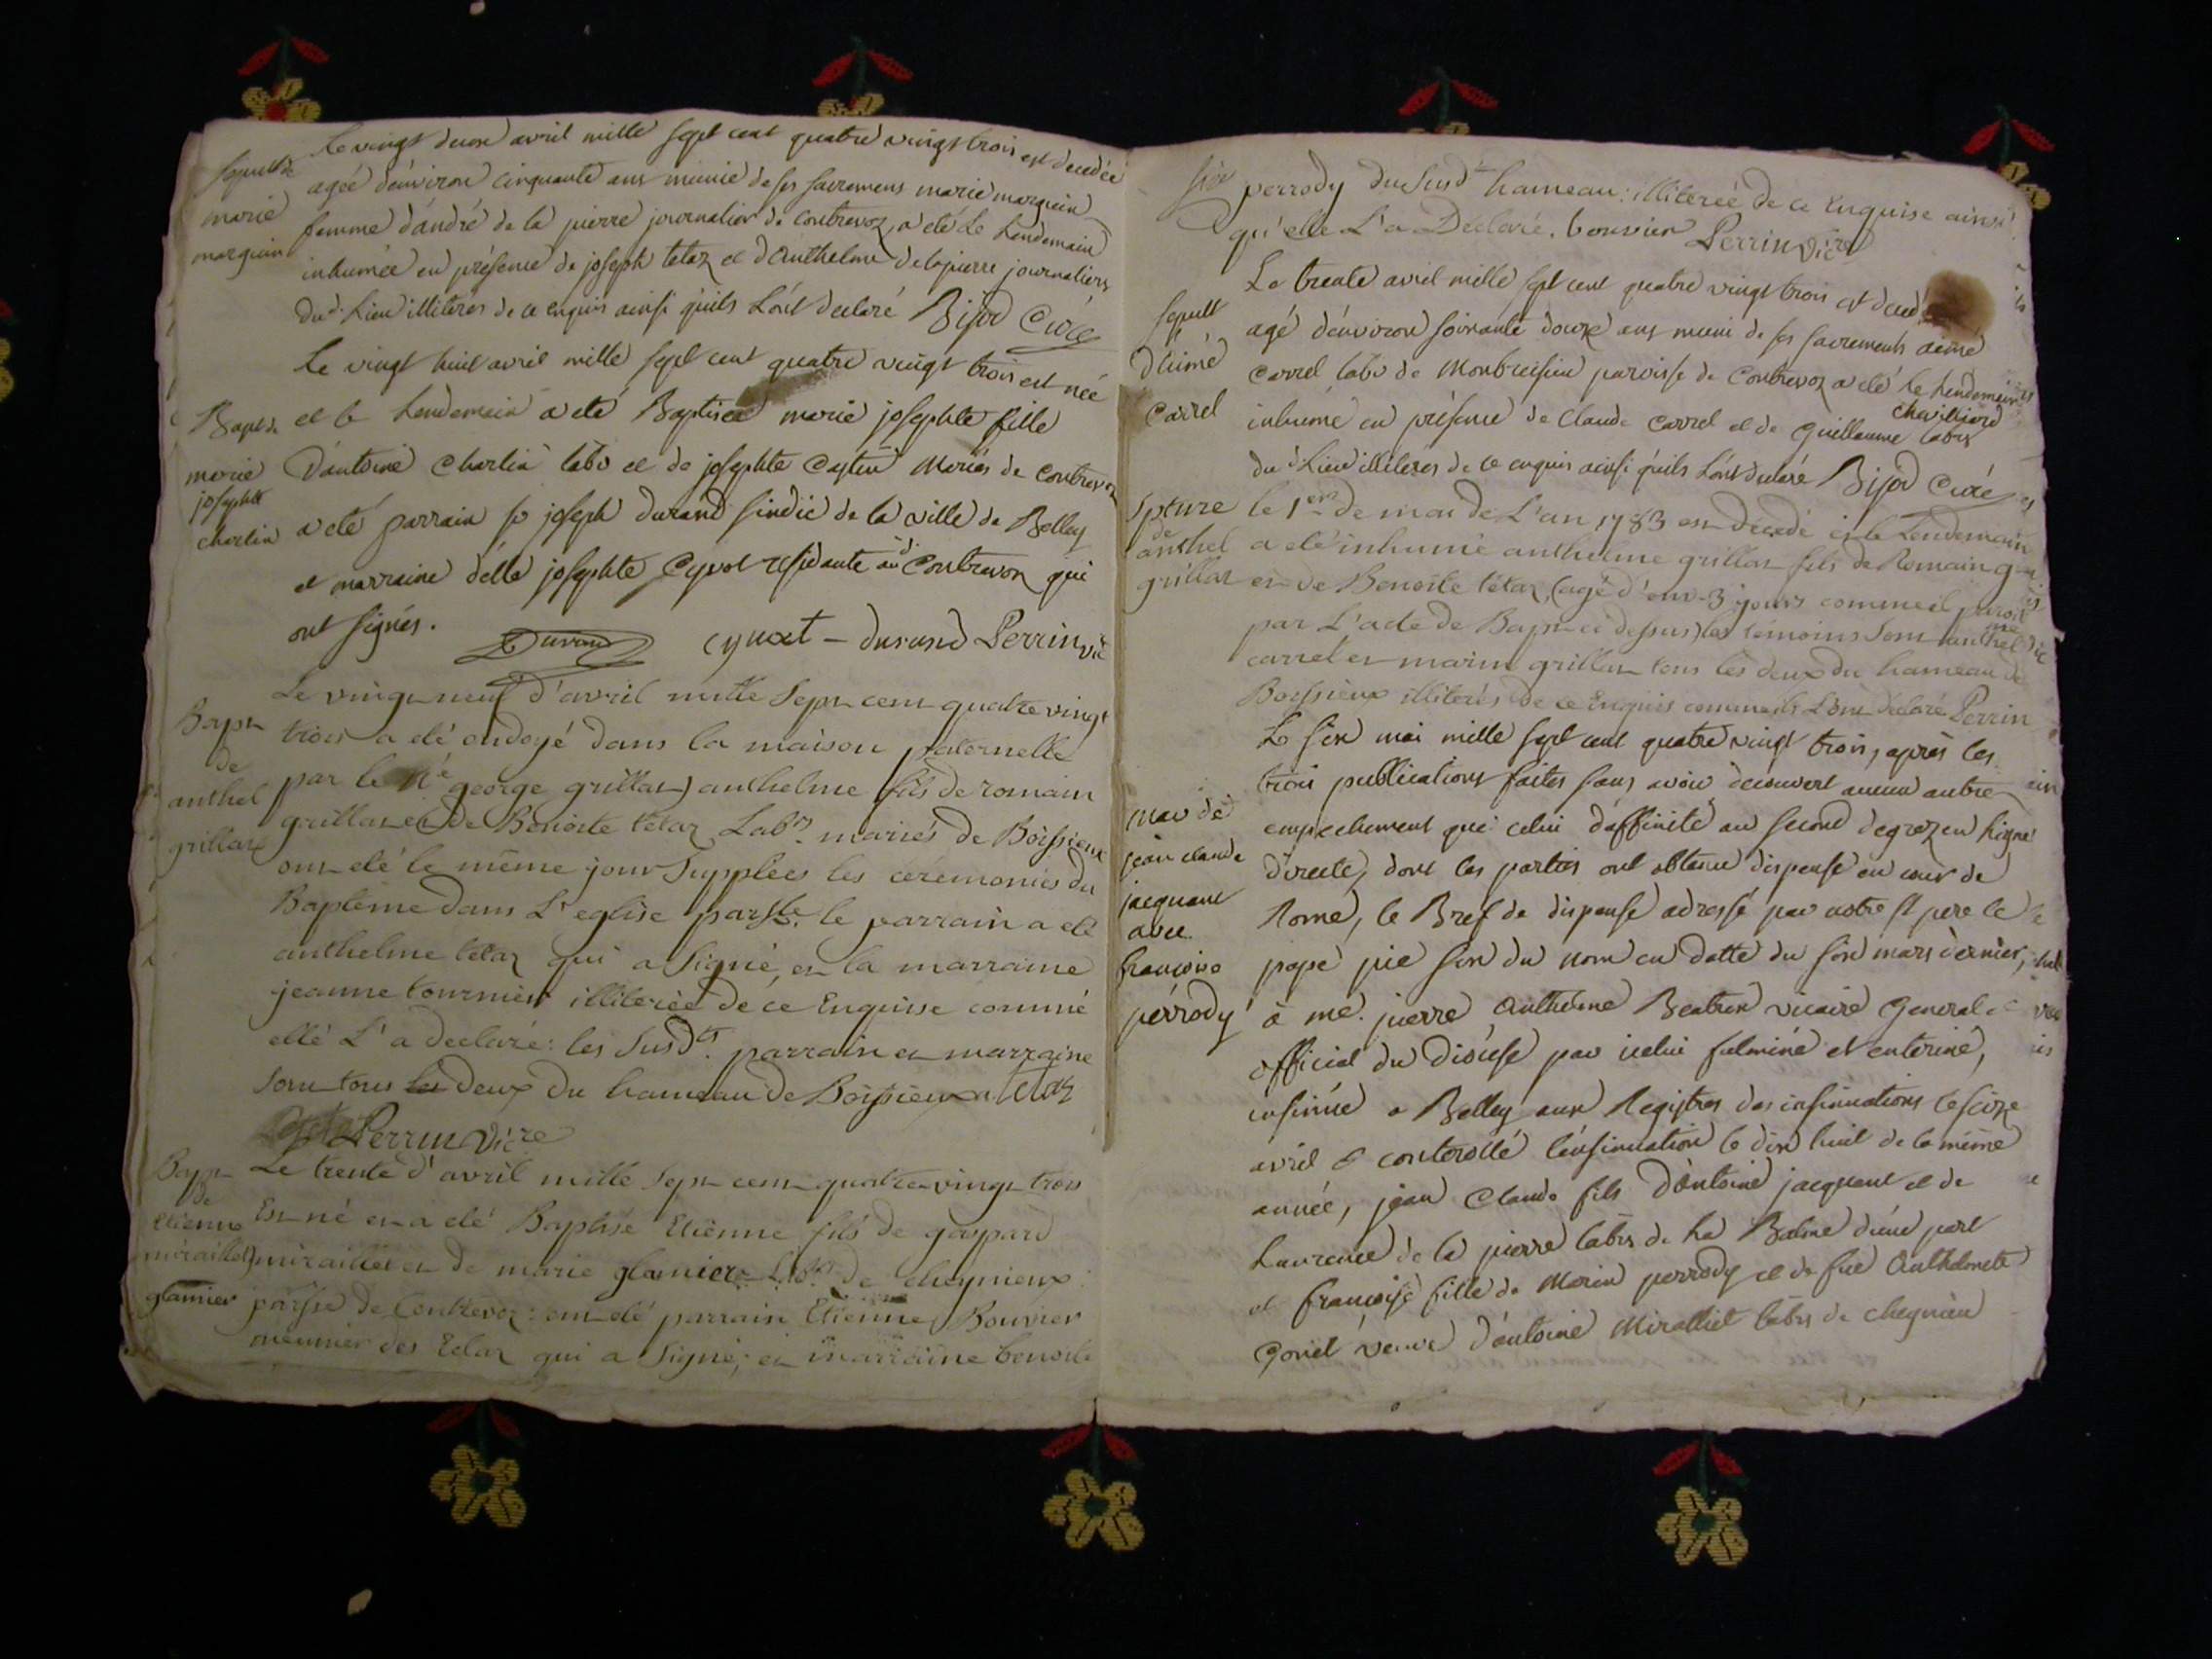 Le vingt deux avril mille sept cent quatre vingt trois est decedée
agée d'environ cinquante ans munie de ses sacremens marie marguin
femme d'andré de la pierre journalier de contrevoz, a eté le lendemain
inhumée en présence de joseph tetaz et d'anthelme delapierre journaliers
dud. lieu illiterés de ce enquis ainsi qu'ils l'ont declaré Bijod Curé
sepult. de
marie
marguin
Le vingt huit avril mille sept cent quatre vingt trois est née
et le lendemain a eté Baptisée marie josephte fille
d'antoine charlin labr et de josephte Castin mariés de contrevoz
a eté parrain sr joseph durand sindic de la ville de Belley
et marraine delle josephte Cyvot residante aud. Contrevoz qui
ont signés.
Bapt. de
marie
josephte
charlin
Durand cyvot - durand Perrin vic
Le vingt neuf d'avril mille sept cent quatre vingt
trois a eté ondoyé dans la maison paternelle
par le george grillat) anthelme fils de romain
grillat et de Benoite tetaz Labrs mariés de Boissieux
ont eté le même jour Supplées les cérémonies du
Baptême dans L'eglise parsle. le parrain a eté
anthelme tetaz qui a Signé, et la marraine
jeanne tournier illiterée de ce Enquise comme
elle L'a declaré: les Susdts. parrain et marraine
sont tous les deux du hameau de Boissieux tetaz
Perrin vicre
Bapt
de
anthel
grillat
Le trente d'avril mille sept cent quatre vingt trois
Est né et a eté Baptisé Etienne fils de gaspard
miraillet et de marie glamier Labrs de cheynieux
parsse de Contrevoz: ont eté parrain Etienne Bouvier
meunier des Etlaz qui a Signé; et marraine benoite
Bapt
de
Etienne
miraillet
glamier
perrody du susdt hameau: illiterée de ce Enquise ainsi
qu'elle L'a Declaré. bouvier Perrin vicre
Le trente avril mille sept cent quatre vingt trois est deced
agé d'environ soixante douze ans muni de ses sacrements aimé
carrel labr de Montbreisieu paroisse de Contrevoz a eté le lendemain
inhumé en présence de Claude carrel et de Guillaume chavilliard labrs
du d. lieu illiterés de ce enquis ainsi qu'ils l'ont declaré Bijod Curé
sepult
d'aimé
carrel
le 1er de mai de L'an 1783 est décedé et le Lendemain
a eté inhumé anthelme grillat fils de Romain
et de Benoite tétaz, (agé d'env. 3 jours comme il paroit
par L'acte de Bapt. ci dessus) les témoins sont anthelme
carrel et marin grillat tous les deux du hameau de
Boissieux illiterés de ce Enquis comme ils L'ont déclaré Perrin
Spture
de
anthel
grillat
Le six mai mille sept cent quatre vingt trois, après les
trois publications faites sans avoir decouvert aucun autre
empechement que celui d'affinité au second degrez en ligne
directe, dont les parties ont obtenu dispense en cour de
Rome, le Bref de dispense adressé par notre st pere le
pape pie six du nom en datte du six mars dernier,
à me. pierre anthelme vicaire General et
official du diocese par icelui fulminé et enteriné,
insinué a Belley aux Registres des insinuations le seize
avril & controllé l'insinuation le dix huit de la même
année, jean Claude fils d'antoine jacquant et de
Laurence de la pierre labrs de La Balme d'une part
et françoise fille de Marin perrody et de fue anthelmette
Goriet veuve d'antoine Miralliet labrs de cheynieu
mar de
jean claude
jacquant
avec
françoise
perrody